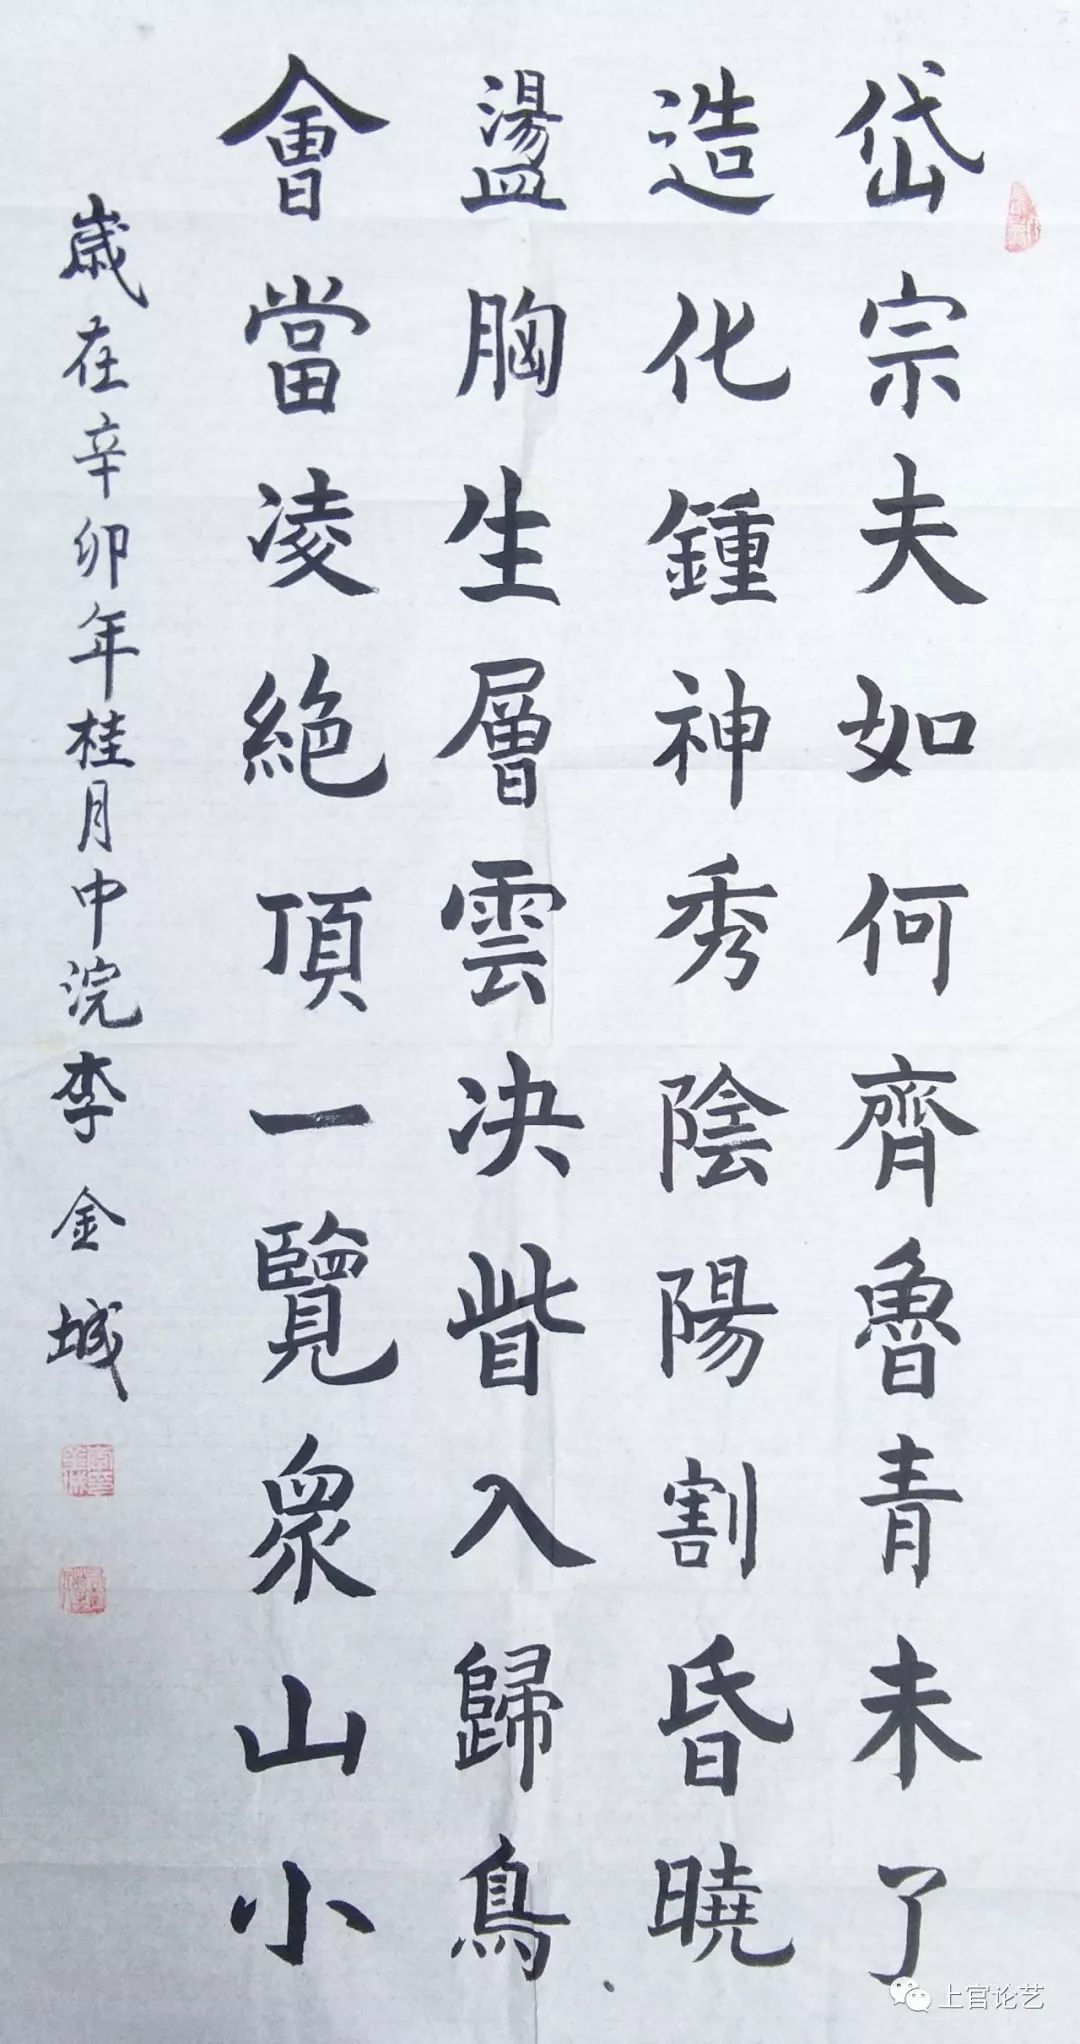 岱宗夫如何齊魯青未了
造化鍾神秀陰陽割昏曉
盪胸生層雲决眥入歸鳥
會當凌絕頂一覽眾山小
歲在辛卯年桂月中浣李金城
上官论艺